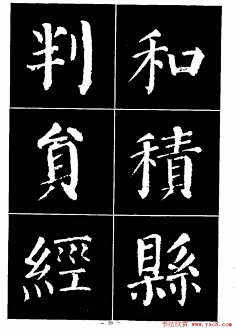 和積縣
判經
- 29 -
书法欣赏 www.yac8.com